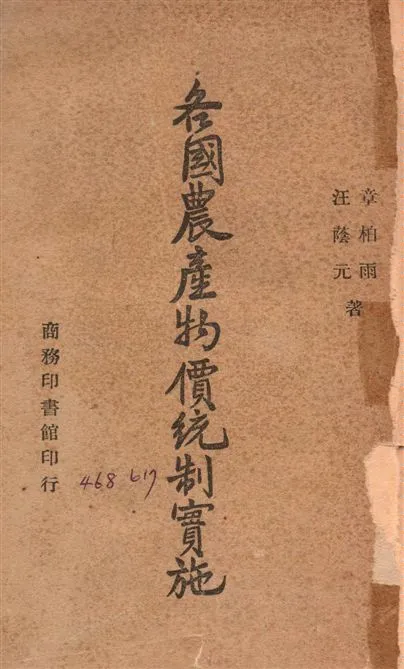 章柏雨
汪蔭元 著
各國農產物價統制實施
商務印書館印行
468 617